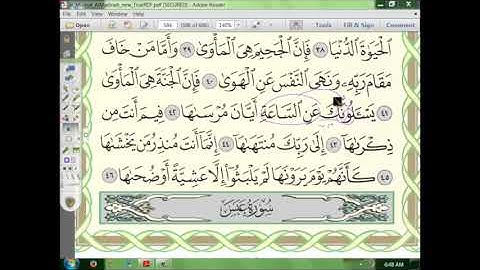 Al_Madinah_new_TruePDF.pdf (SECURED) - Adobe Reader
Open
584
147%
Tools
Fill & Sign
Comment
ٱلْحَيَوٰةَ ٱلدُّنْيَا ٣٨ فَإِنَّ ٱلْجَحِيمَ هِىَ ٱلْمَأْوَىٰ ٣٩ وَأَمَّا مَنْ خَافَ
مَقَامَ رَبِّهِۦ وَنَهَى ٱلنَّفْسَ عَنِ ٱلْهَوَىٰ ٤٠ فَإِنَّ ٱلْجَنَّةَ هِىَ ٱلْمَأْوَىٰ
٤١ يَسْـَٔلُونَكَ عَنِ ٱلسَّاعَةِ أَيَّانَ مُرْسَىٰهَا ٤٢ فِيمَ أَنتَ مِن
ذِكْرَىٰهَآ ٤٣ إِلَىٰ رَبِّكَ مُنتَهَىٰهَآ ٤٤ إِنَّمَآ أَنتَ مُنذِرُ مَن يَخْشَىٰهَا
٤٥ كَأَنَّهُمْ يَوْمَ يَرَوْنَهَا لَمْ يَلْبَثُوٓا۟ إِلَّا عَشِيَّةً أَوْ ضُحَىٰهَا ٤٦
سُورَةُ عَبَسَ
6:48 AM